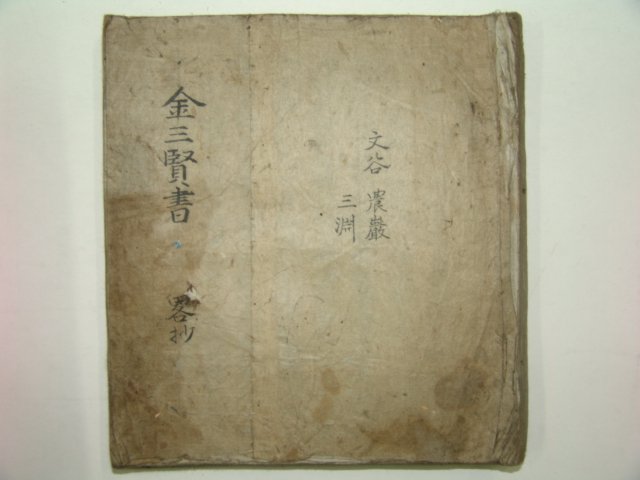 金三賢書 畧抄
文谷 農巖
三淵